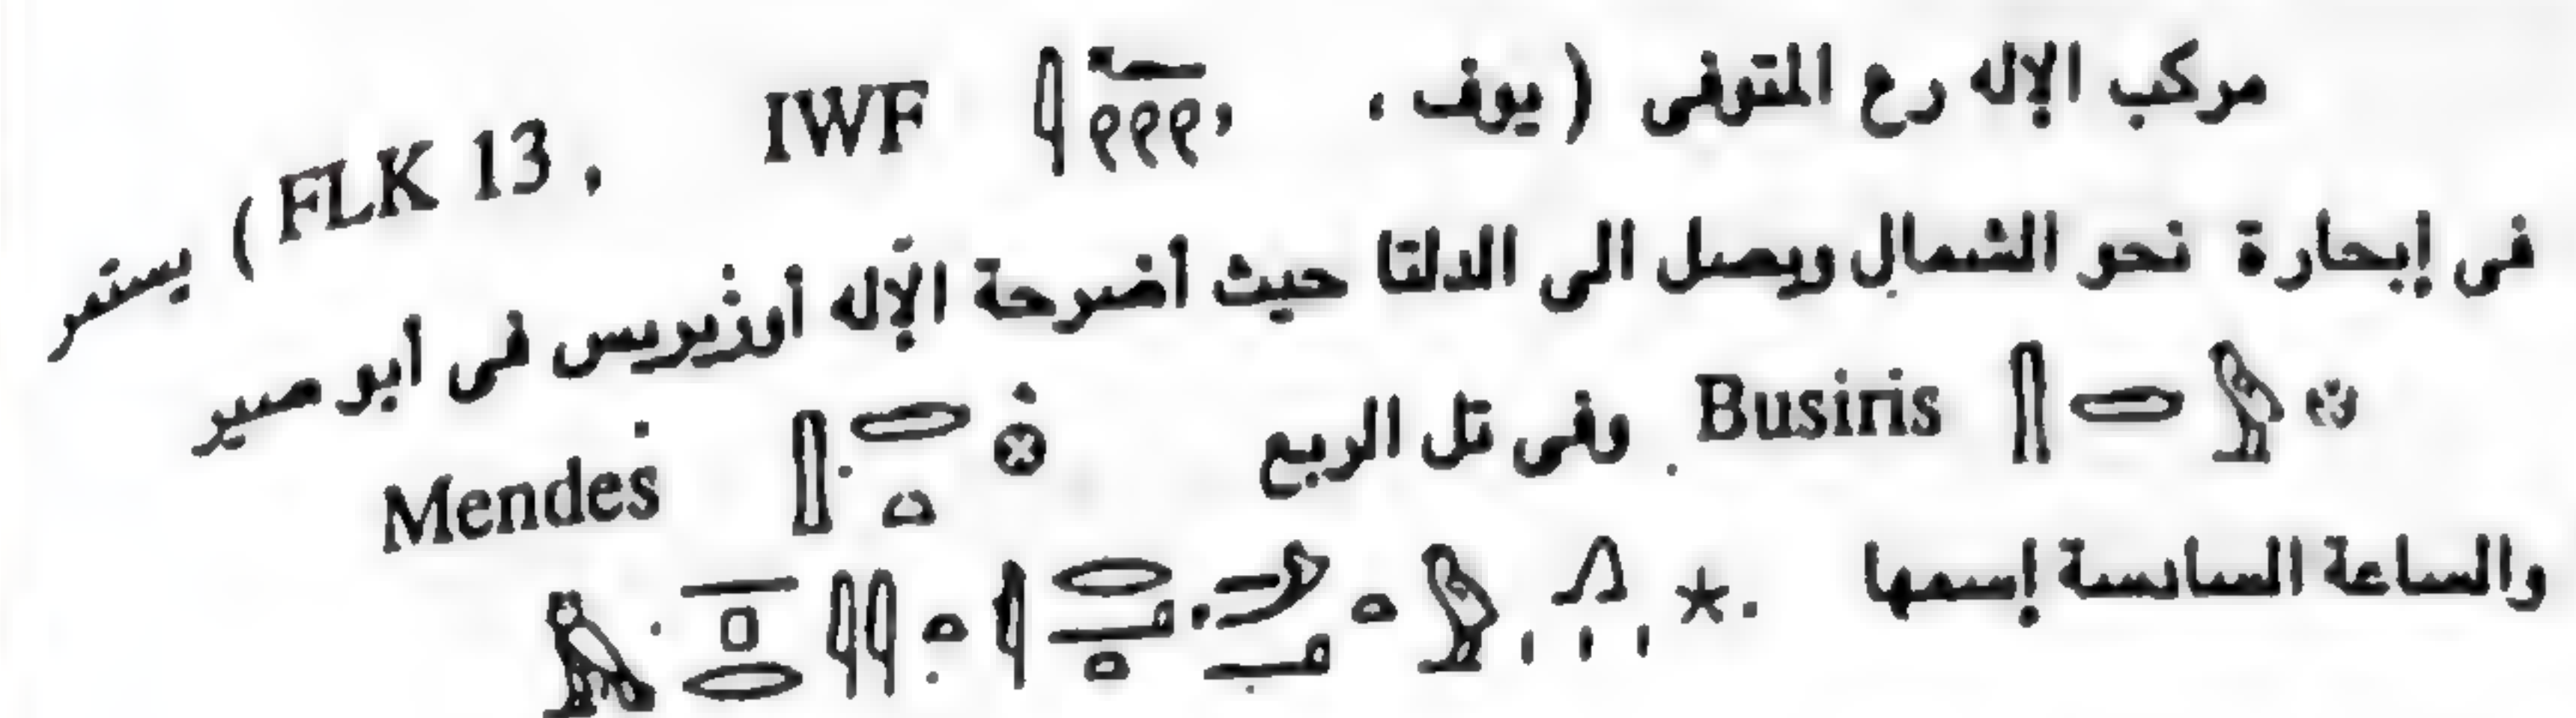 مركب الإله رع المتوفى (يوف، IWF , FLK 13) يستمر
فى إبحارة نحو الشمال ويصل الى الدلتا حيث أضرحة الإله أوزيريس فى أبو صير
Busiris وفى تل الربع Mendes
والساعة السادسة إسمها